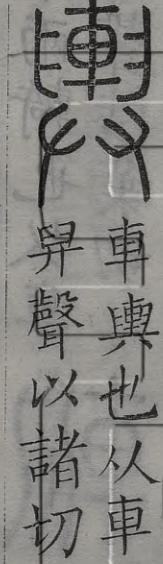 輿
車輿也从車
舁聲以諸切